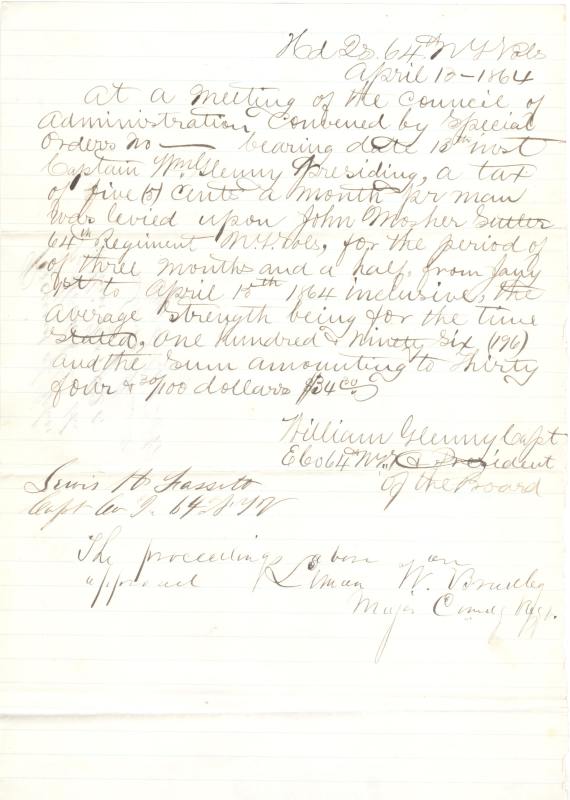 Hd Qs. 64th N Y Vols
April 15-1864
At a Meeting of the Council of
Administration Convened by Special
Orders No — bearing date 15th inst
Captain Wm Glenny Presiding, a tax
of five (5) Cents a month per man
was levied upon John Mosher Sutler
64th Regiment N.Y. Vols, for the period of
of three months and a half, from Jany
1st to April 15th 1864 inclusive, the
average strength being for the time
Stated, One hundred & Ninety Six (196)
and the Sum amounting to Thirty
four & 30/100 dollars $34 30
William Glenny Capt
E Co 64 N.Y. & President
of the Board
Lewis H Fassett
Capt Co 64 N.Y.V
The proceedings above are
approved Leman W. Bradley
Major Comdg Regt.